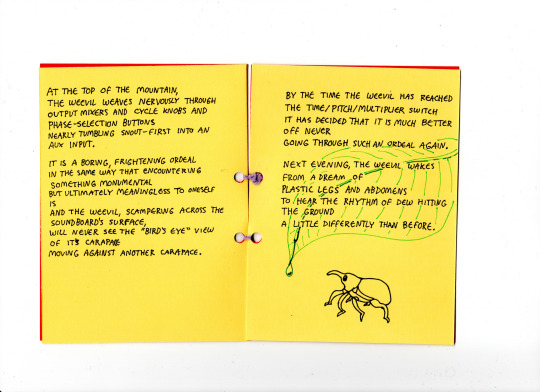 AT THE TOP OF THE MOUNTAIN,
THE WEEVIL WEAVES NERVOUSLY THROUGH
OUTPUT MIXERS AND CYCLE KNOBS AND
PHASE-SELECTION BUTTONS
NEARLY TUMBLING SNOUT-FIRST INTO AN
AUX INPUT.
IT IS A BORING, FRIGHTENING ORDEAL
IN THE SAME WAY THAT ENCOUNTERING
SOMETHING MONUMENTAL
BUT ULTIMATELY MEANINGLESS TO ONESELF
IS
AND THE WEEVIL, SCAMPERING ACROSS THE
SOUNDBOARD'S SURFACE,
WILL NEVER SEE THE "BIRD'S EYE" VIEW
OF ITS CARAPACE
MOVING AGAINST ANOTHER CARAPACE.
BY THE TIME THE WEEVIL HAS REACHED
THE TIME/PITCH/MULTIPLIER SWITCH
IT HAS DECIDED THAT IT IS MUCH BETTER
OFF NEVER
GOING THROUGH SUCH AN ORDEAL AGAIN.
NEXT EVENING, THE WEEVIL WAKES
FROM A DREAM OF
PLASTIC LEGS AND ABDOMENS
TO HEAR THE RHYTHM OF DEW HITTING
THE GROUND
A LITTLE DIFFERENTLY THAN BEFORE.